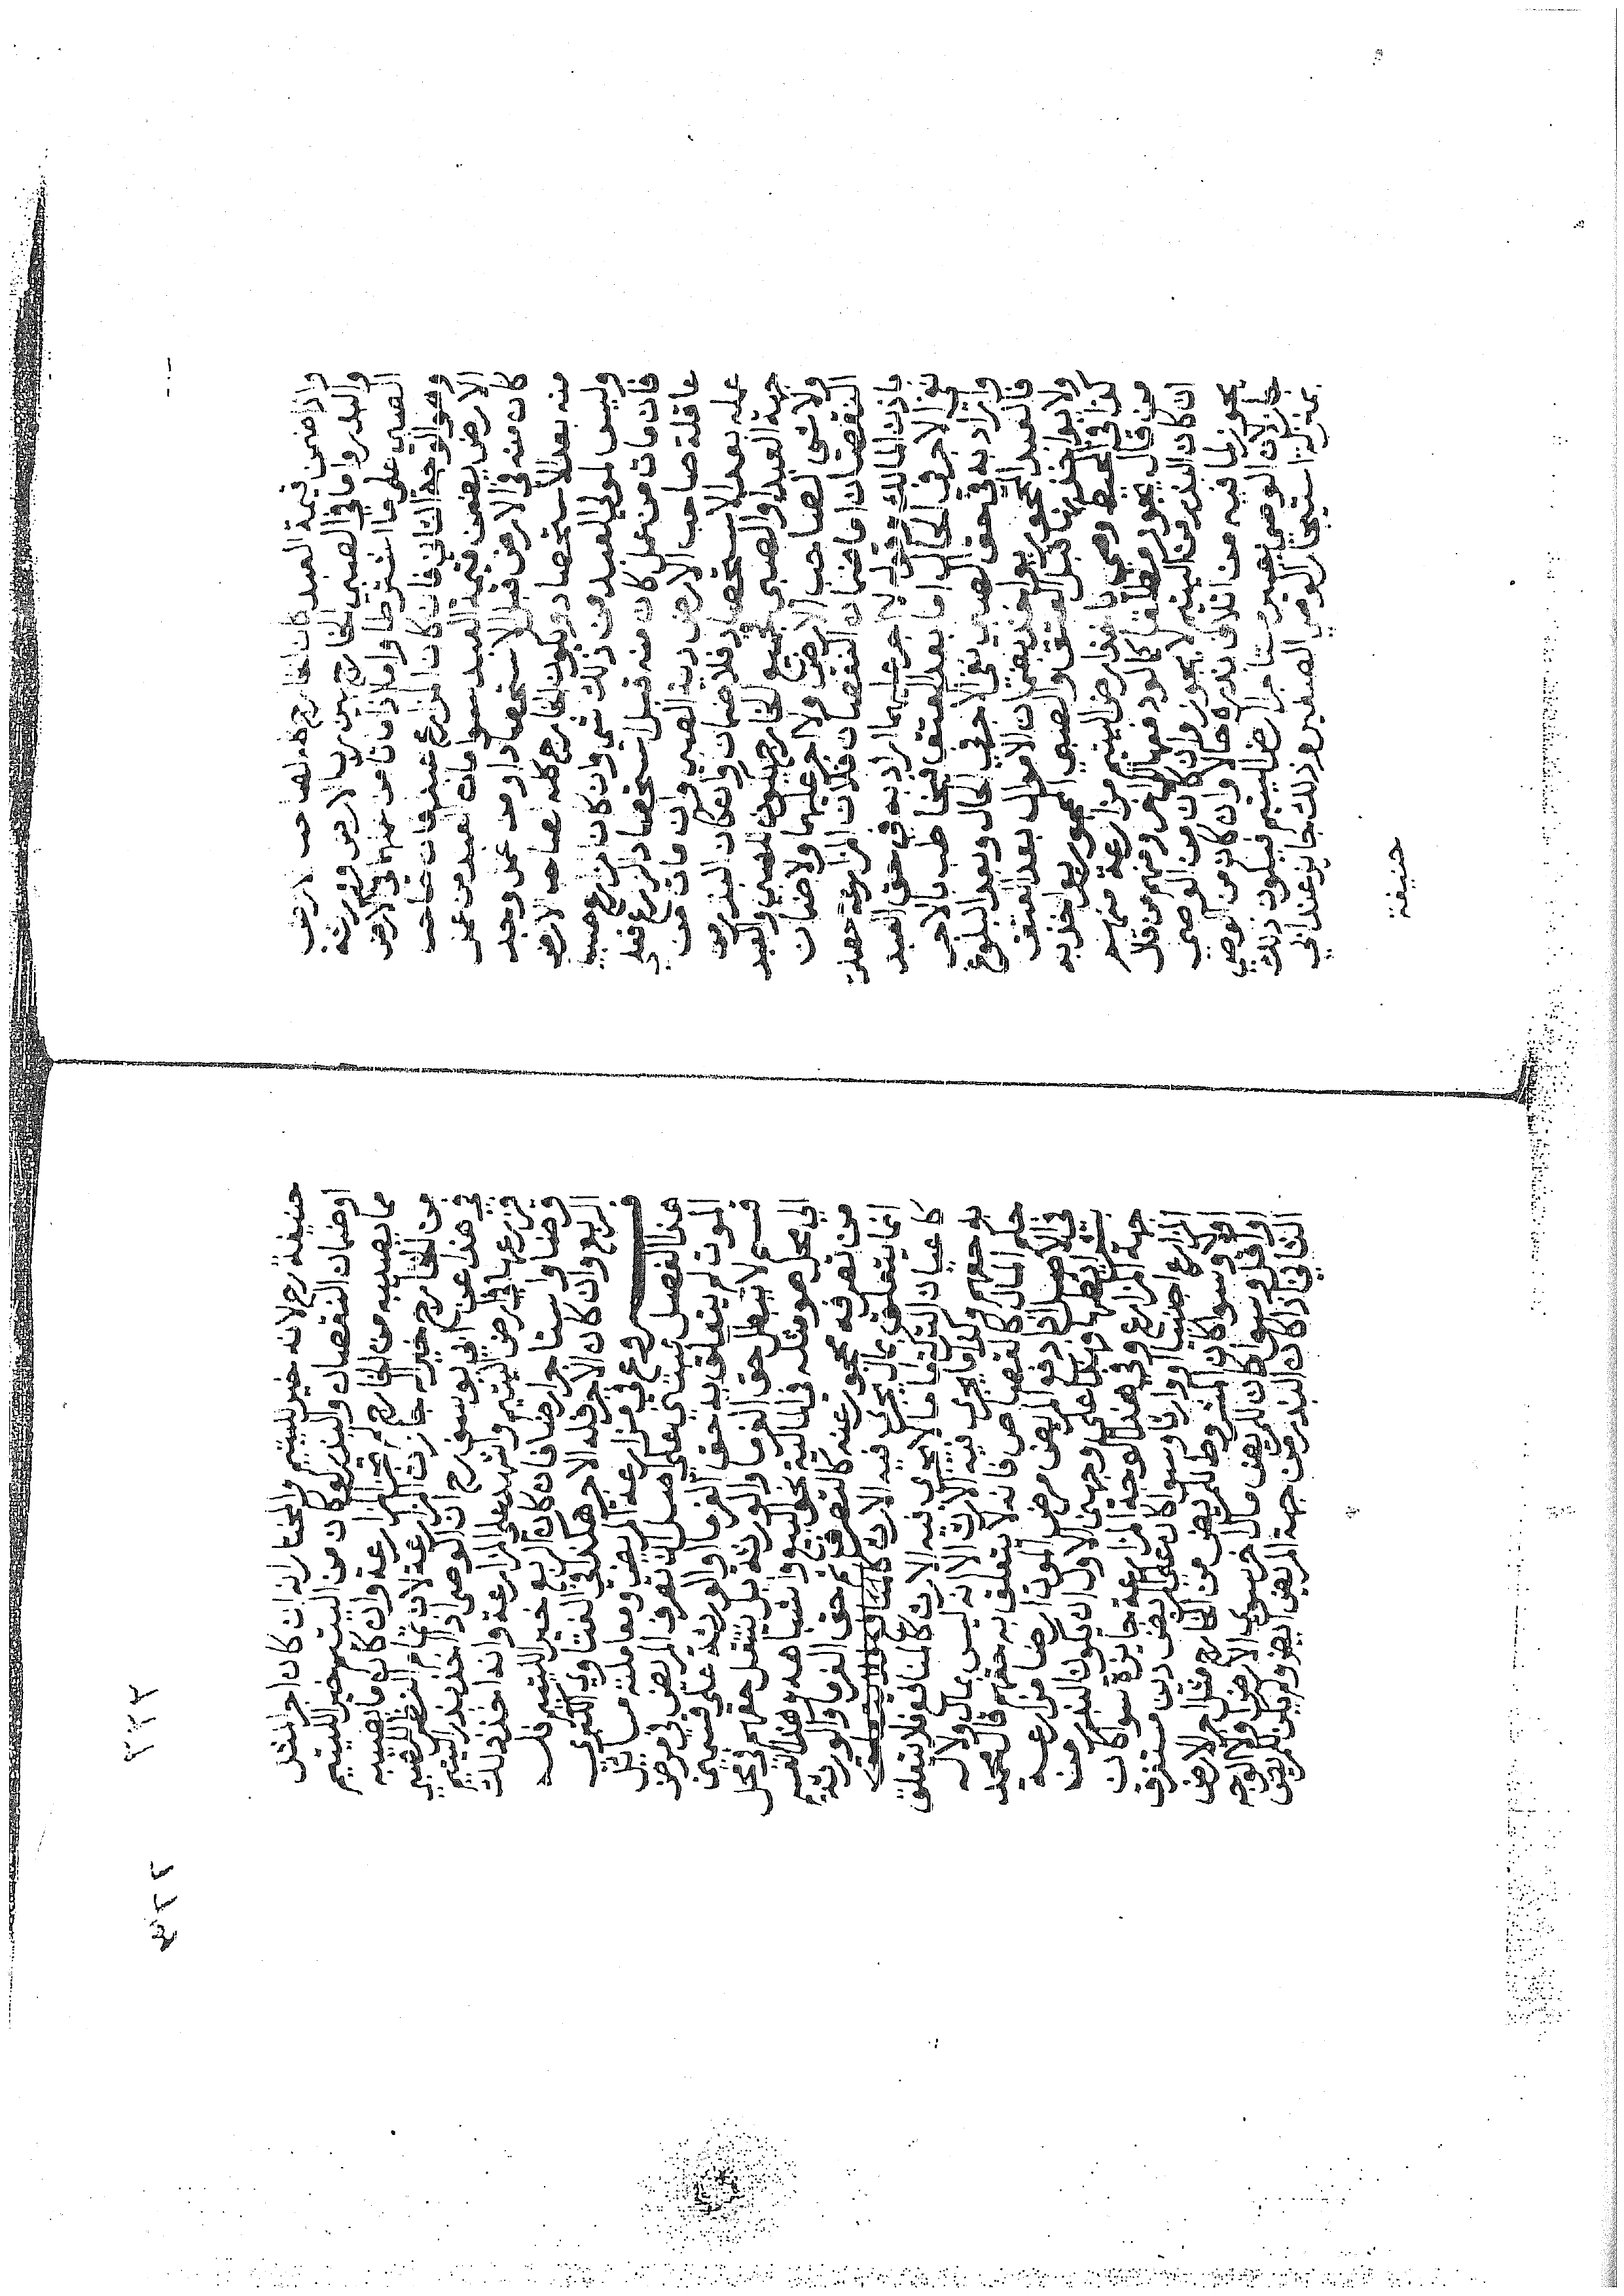 واذا ضمن قيمة العبد كان الخارج كله لصاحب الارض
والبذر واما في الصبي الخارج بين رب الارض وبين ورثة
الصبي على ما اشترطا واما اذا مات من عمله في الارض
وهو الوجه الثاني فان كان المزارع عبدا فان صاحب
الارض يضمن قيمة العبد سوا مات العبد من عمل
كان منه في الارض قبل الاستحصاد او من عمل وجد
منه بعد الاستحصاد ويكون الخارج كله لصاحب الارض
وليس لمولى العبد من ذلك شي وان كان المزارع صبيا
فان مات من عمل كان منه قبل استحصاد الزرع فعلى
عاقلة صاحب الارض دية الصبي وان مات من
عمله بعد الاستحصاد فلا ضمان وان كان البذر من
جهة العبد او الصبي فجميع الخارج يكون للصبي والعبد
ولا شي لصاحب الارض ولا اجر عليهما ولا ضمان
النقصان اما ضمان النقصان فلان المزارعة حصلت
باذن المالك وقوله لا اجر عليهما اراد به في حق العبد
نفي الاجر في الحال اما بعد العتق فيخاطب بالاجر
واراد به في حق الصبي نفي الاجر في الحال وبعد البلوغ
فالعبد المحجور يواخذ بضمان الاموال بعد العتق
ولا يواخذ بها قبل العتق والصبي المحجور يواخذ به
كذا في المحيط وصي يا خذ ارض اليتيم مزارعة منهم
من قال يجوز مطلقا كما لو دفعها الى اخر ومنهم من قال
ان كان البذر من اليتيم لا يجوز وان كان من الوصي
يجوز لما فيه من اتلاف بذره حالا وان كان من الوصي
جاز لان الوصي يصير مستاجرا ارض اليتيم فيكون ذلك
بمنزلة استيجار الوصي الصغير وذلك جايز عند ابي
حنيفة
٢٢٣
٢٢٤
حنيفة رح لانه خير لليتيم والمختار انه ان كان اجر مثل
او ضمان النقصان والبذر لو كان من اليتيم خير لليتيم
مما يصيبه من الخارج لم تجز المزارعة وان كان ما يصيبه
من الخارج خير له جازت المزارعة لان تمام النظر للصبي
في هذا عن ابي يوسف رح ان الوصي اذا اخذ بذر اليتيم
فزرعها في ارض اليتيم واشهد على المزارعة وانه اخذ ذلك
قرضا واستاجر ارضا فان كان الربع خير لليتيم فله
الربع وان كان الاجر فله الاجر هكذا في الفتاوى الكبرى
فروع في مزارعة المريض ومعاملته مسايل
هذا الفصل يبتني على اصل ان تصرف المريض في مرض
الموت لم يتعلق به حق الغرما والورثة على قسمين
قسم لا يبطل حق الغرما والورثة بل ينتقل حقهم في محل
الى محل هو مثله في المالية نحو البيع واشباهه وهذا القسم
من تصرفه محجور عنه كالتصرف ثم حق الغرما والورثة
انما يتعلق بمال يجري فيه الارث
كاعيان التركة اما ما لا يجري فيه الارث كالمنافع فلا يتعلق
به حقهم وكذا ما يجري فيه الارث الا انه ليس بمال ولا له
حكم المال كالقصاص فانه لا يتعلق به حقهم قال محمد
في الاصل اذا دفع المريض مرض الموت ارضا مزارعة
بشرايطها وهي على وجهين الاول ان يكون البذر من
جهة المزارع وفي هذا الوجه المزارعة جايزة سوا كان
المزارع اجنبيا او وارثا وسوا كان على المريض دين مستغرق
اولا وسوا كان المشروط للمريض من الخارج مثل اجر الارض
او اقل وسوا كان للمريض مال اخر سوى الارض اولا الوجه
الثاني اذا كان البذر من جهة المريض ايضا ولم يكن للمريض